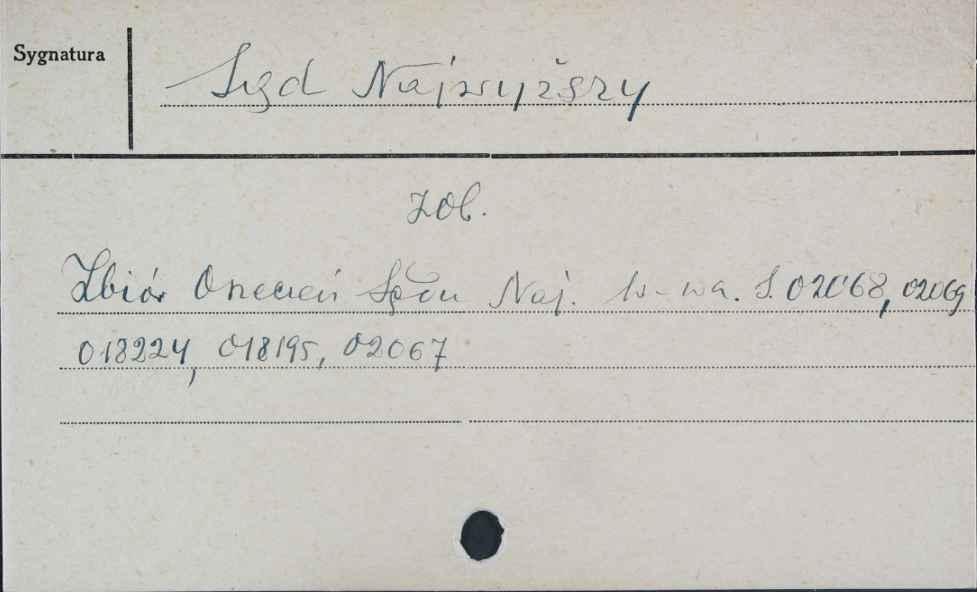 Sygnatura
Sąd Najwyższy
zob.
Zbiór Orzeczeń Sądu Naj. W-wa. S. 02068, 02069
018224, 018195, 02067